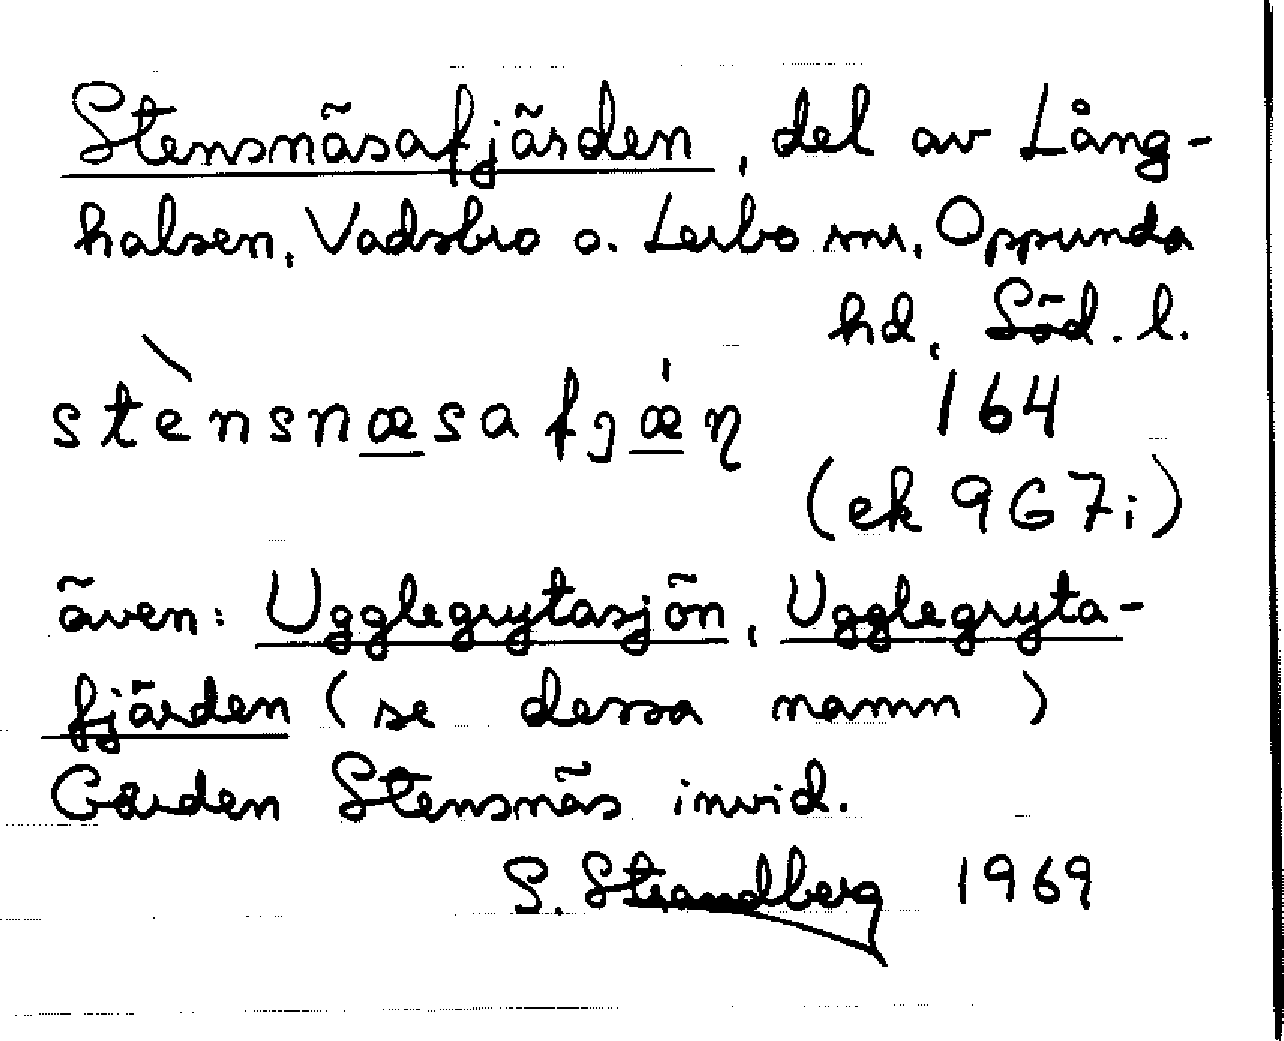 Stensnäsafjärden, del av Lång-
halsen, Vadsbro o. Lerbo snr, Oppunda
hd, Söd. l.
stènsnæsafjǽṇ 164
(ek 9G7i)
även: Ugglegrytasjön, Ugglegryta-
fjärden (se dessa namn)
Gården Stensnäs invid.
S. Strandberg 1969